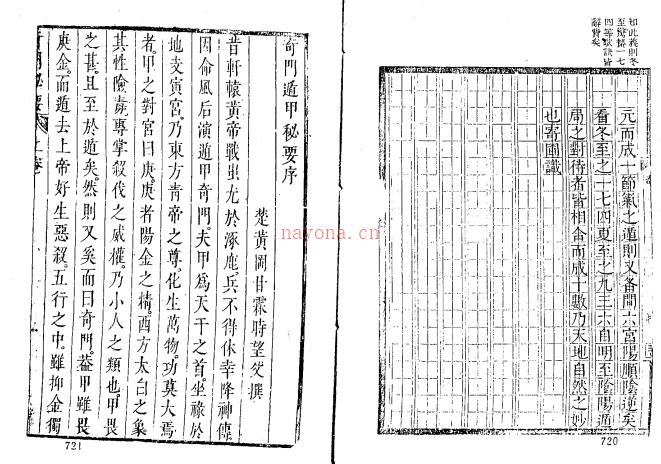 知此義則冬
至驚蟄一七
四等歌訣皆
辭費矣
元而成十節氣之遁則又备閏六宮陽順陰逆矣
看冬至之一七四夏至之九三六自明至陰陽遁
局之對待者皆相合而成十數乃天地自然之妙
也寄圃識
720
奇門遁甲秘要序
楚黄岡甘霖時望父撰
昔軒轅黄帝戰蚩尤於涿鹿兵不得休幸降神傳
因命風后演遁甲奇門夫甲爲天干之首坐祿於
地支寅宮乃東方青帝之尊化生萬物功莫大焉
者甲之對宮曰庚庚者陽金之精西方太白之象
其性險毒專掌殺伐之威權乃小人之類也甲畏
之甚且至於遁矣然則又奚而曰奇門蓋甲雖畏
庚金而遁去上帝好生惡殺五行之中雖抑金獨
721
nayona.cn